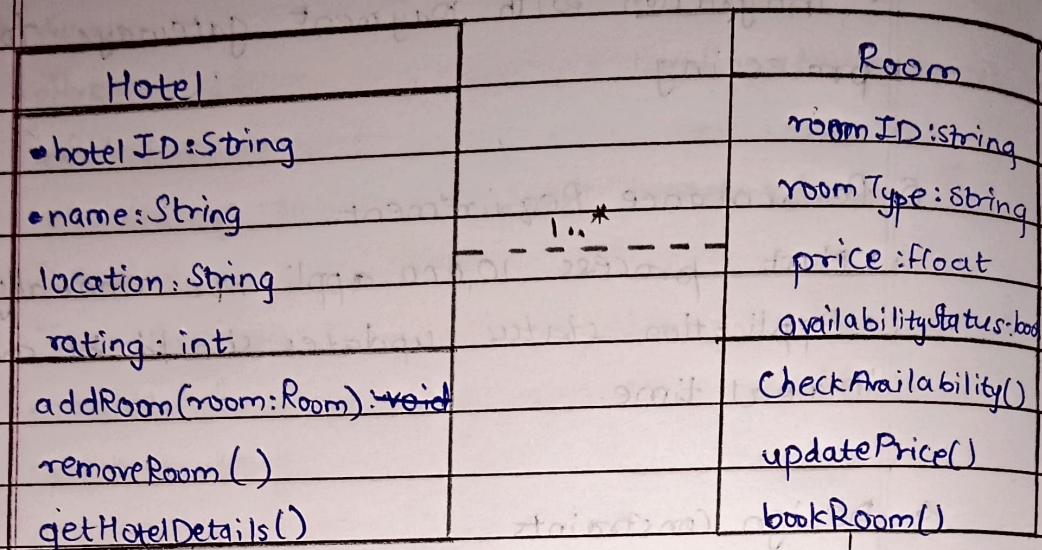 Hotel
• hotel ID: String
• name: String
location: String
rating: int
addRoom(room: Room): void
removeRoom()
getHotelDetails()
1..*
Room
room ID: string
roomType: string
price: float
availabilityStatus: bool
CheckAvailability()
updatePrice()
bookRoom()